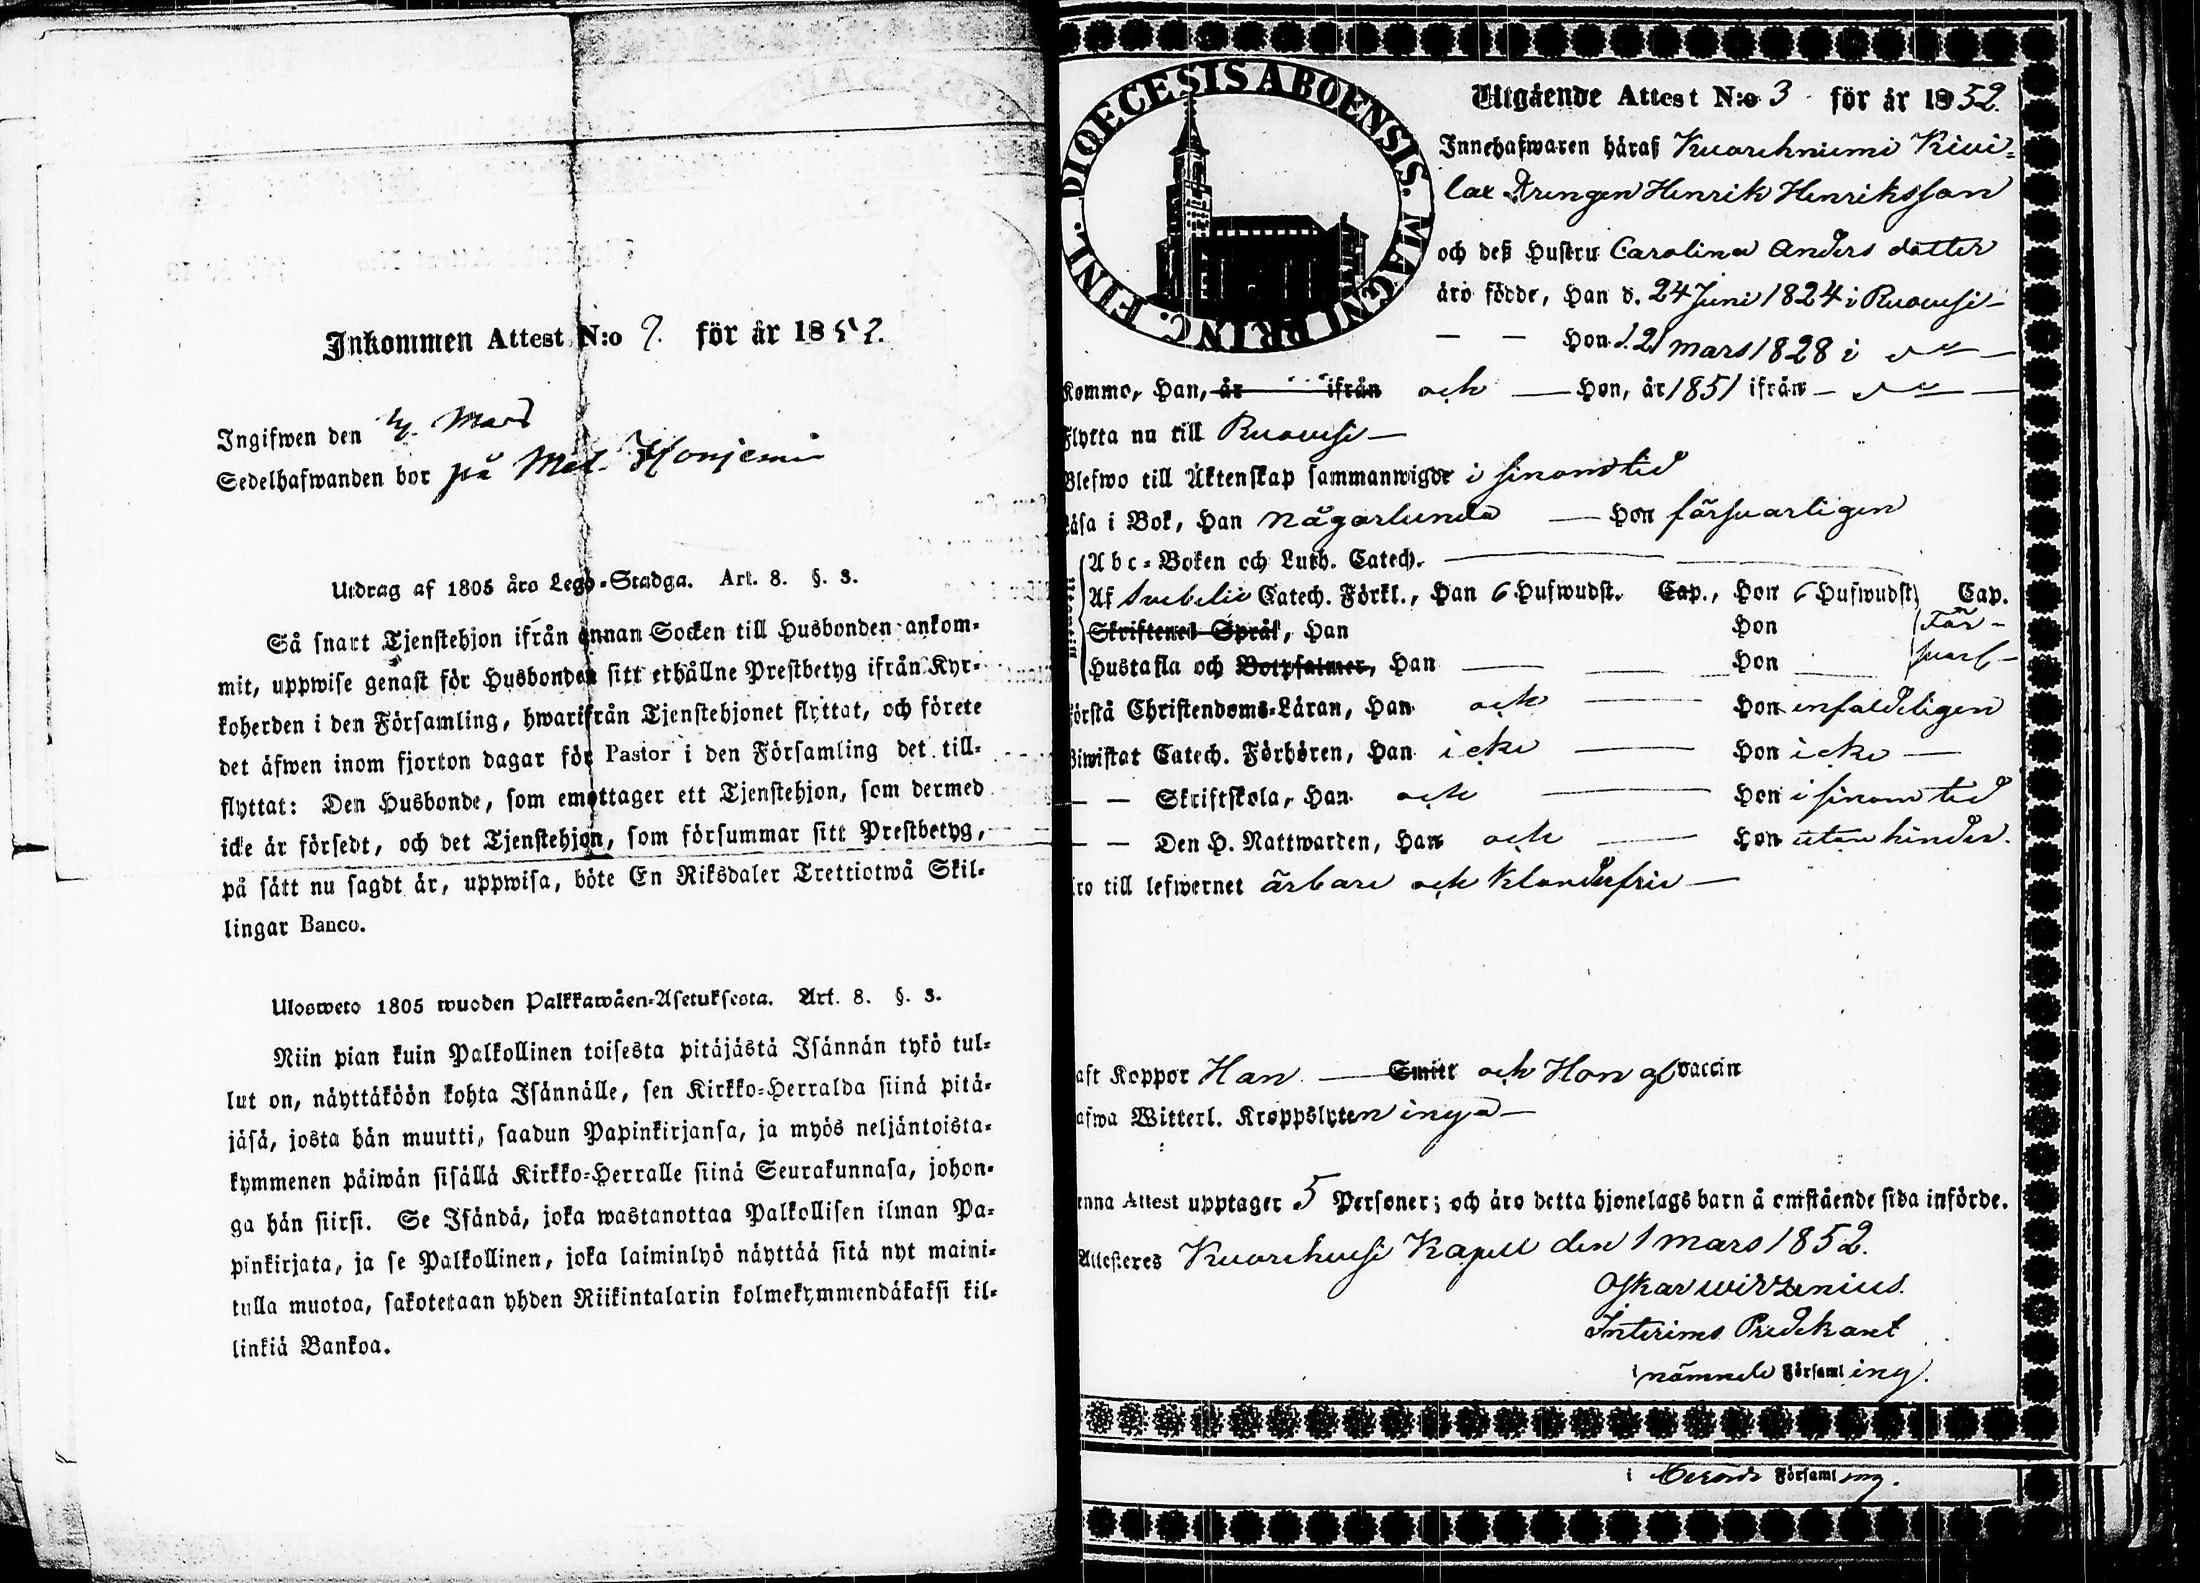 Inkommen Attest N:o 9. för år 1852.
Ingifwen den Mars
Sedelhafwanden bor på
Utdrag af 1805 års Lego-Stadga. Art. 8. §. 3.
Så snart Tjenstehjon ifrån annan Socken till Husbonden ankom-
mit, uppwise genast för Husbonden sitt erhållne Prestbetyg ifrån Kyr-
koherden i den Församling, hwarifrån Tjenstehjonet flyttat, och förete
det äfwen inom fjorton dagar för Pastor i den Församling det till-
flyttat: Den Husbonde, som emottager ett Tjenstehjon, som dermed
icke är försedt, och det Tjenstehjon, som försummar sitt Prestbetyg,
på sätt nu sagdt är, uppwisa, böte En Riksdaler Trettiotwå Skil-
lingar Banco.
Ulosweto 1805 wuoden Palkkawäen-Asetuksesta. Art. 8. §. 3.
Niin pian kuin Palkollinen toisesta pitäjästä Isännän tykö tul-
lut on, näyttäköön kohta Isännälle, sen Kirkko-Herralda siinä pitä-
jäsä, josta hän muutti, saadun Papinkirjansa, ja myös neljäntoista-
kymmenen päiwän sisällä Kirkko-Herralle siinä Seurakunnasa, johon-
ga hän siirsi. Se Isändä, joka wastanottaa Palkollisen ilman Pa-
pinkirjata, ja se Palkollinen, joka laiminlyö näyttää sitä nyt maini-
tulla muotoa, sakotetaan yhden Riikintalarin kolmekymmendäkaksi kil-
linkiä Bankoa.
DIOECESIS ABOENSIS. MAGNI PRINC. FINL.
Utgående Attest N:o 3 för år 1852.
Innehafwaren häraf Kuorehniemi Kiwi-
lax Drengen Henrik Henriksson
och deß Hustru Carolina Anders dotter
äro födde, Han d. 24 Juni 1824 i Ruovesi -
- - Hon d. 21 mars 1828 i d:o -
Kommo, Han, år ifrån och - Hon, år 1851 ifrån - d:o -
Flytta nu till Ruovesi -
Blefwo till Äktenskap sammanwigde i sinom tid
Läsa i Bok, Han någorlunda - Hon försvarligen
Abc-Boken och Luth. Catech.
Af Svebelii Catech. Förkl., Han 6 Hufwudst. Cap., Hon 6 Hufwudst. Cap.
Skriftenes Språk, Han Hon För-
Hustafla och Botpsalmer, Han - Hon svarl -
förstå Christendoms-Läran, Han och - Hon enfaldeligen
Biwistat Catech. Förhören, Han icke - Hon icke -
- - Skriftskola, Han och - Hon i sinom tid
- - Den H. Nattwarden, Han och - Hon utan hinder.
äro till lefwernet ärbare och klanderfrie -
haft Koppor Han - Smitt och Hon af vaccin
hafwa Witterl. Kroppslyten inga -
Denna Attest upptager 5 Personer; och äro detta hjonelags barn å omstående sida införde.
Attesteres Kuorehvesi Kapell den 1 mars 1852.
Oskar Wirzenius.
Interims Predikant
i nämnde Församling.
i Församling.